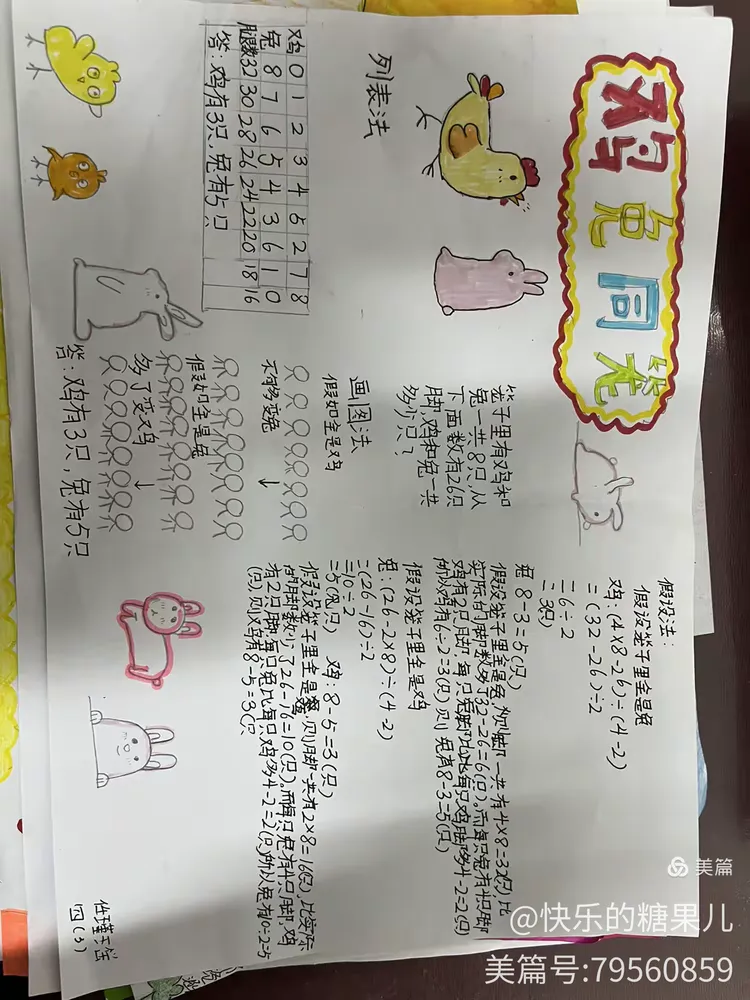 鸡兔同笼
列表法
鸡 0 1 2 3 4 5 2 7 8
兔 8 7 6 5 4 3 6 1 0
腿数 32 30 28 26 24 22 20 18 16
答:鸡有3只,兔有5只
笼子里有鸡和
兔一共8只,从
下面数有26只
脚,鸡和兔一共
多少只?
画图法
假如全是鸡
不够多变兔
假如全是兔
多了变鸡
答:鸡有3只,兔有5只
假设法:
假设笼子里全是兔
鸡:(4×8-26)÷(4-2)
=(32-26)÷2
=6÷2
=3(只)
兔 8-3=5(只)
假设笼子里全是兔,则脚一共有4×8=32(只),比
实际的脚数多了32-26=6(只)。而每只兔有4只脚
鸡有2只脚,每只兔脚比每只鸡脚多4-2=2(只)
所以鸡有6÷2=3(只),则兔有8-3=5(只)
假设笼子里全是鸡
兔:(26-2×8)÷(4-2)
=(26-16)÷2
=10÷2
=5(只) 鸡:8-5=3(只)
假设笼子里全是鸡,则脚一共有2×8=16(只),比实际
的脚数少了26-16=10(只)。而每只兔有4只脚,鸡
有2只脚,每只兔比每只鸡多4-2=2(只)所以兔有10÷2=5
(只),则鸡有8-5=3(只
四(3)
美篇
@快乐的糖果儿
美篇号:79560859